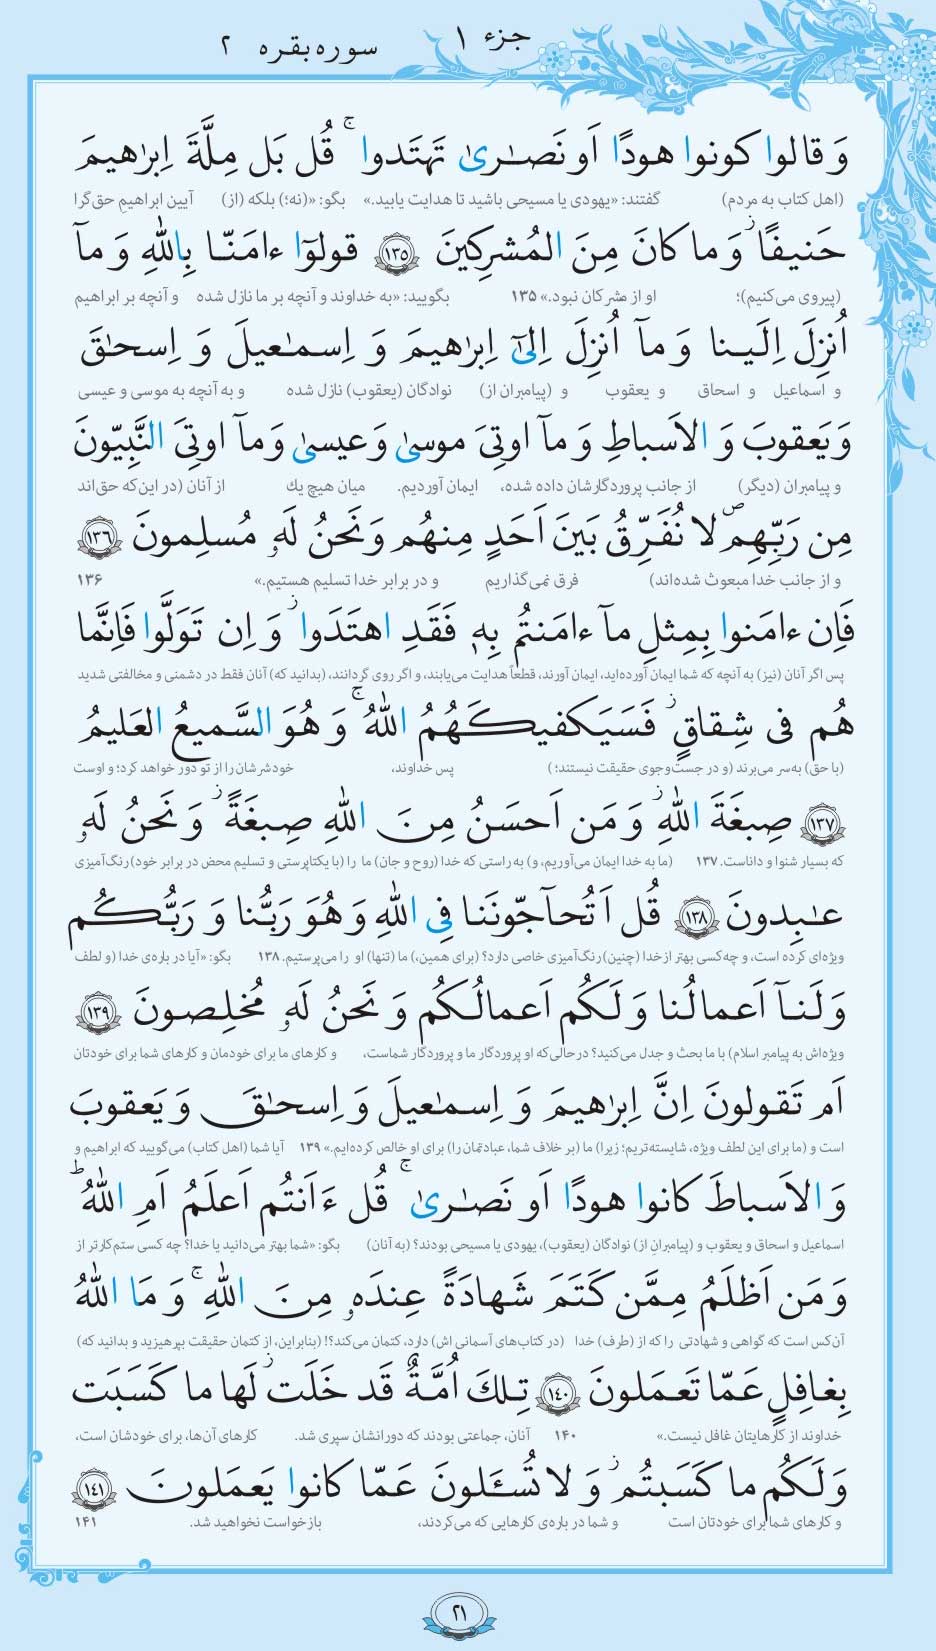 جزء ۱
سوره بقره ۲
وَ قالوا كونوا هودًا اَو نَصٰرىٰ تَهتَدوا ۚ قُل بَل مِلَّةَ اِبرٰهيمَ
(اهل کتاب به مردم) گفتند: «یهودی یا مسیحی باشید تا هدایت یابید.» بگو: «(نه؛) بلکه (از) آیین ابراهیمِ حق‌گرا
حَنيفًا ۖ وَ ما كانَ مِنَ المُشرِكينَ ﴿۱۳۵﴾ قولوٓا ءامَنّا بِاللّٰهِ وَ مآ
(پیروی می‌کنیم)؛ او از مشرکان نبود.» ۱۳۵ بگویید: «به خداوند و آنچه بر ما نازل شده و آنچه بر ابراهیم
اُنزِلَ اِلَينا وَ مآ اُنزِلَ اِلىٰٓ اِبرٰهيمَ وَ اِسمٰعيلَ وَ اِسحٰقَ
و اسماعیل و اسحاق و یعقوب و (پیامبران از) نوادگان (یعقوب) نازل شده و به آنچه به موسی و عیسی
وَ يَعقوبَ وَ الاَسباطِ وَ مآ اوتِيَ موسىٰ وَ عيسىٰ وَ مآ اوتِيَ النَّبِيّونَ
و پیامبران (دیگر) از جانب پروردگارشان داده شده، ایمان آوردیم. میان هیچ یك از آنان (در این‌که حق‌اند
مِن رَبِّهِم ۖ لا نُفَرِّقُ بَينَ اَحَدٍ مِنهُم وَ نَحنُ لَهٗ مُسلِمونَ ﴿۱۳۶﴾
و از جانب خدا مبعوث شده‌اند) فرق نمی‌گذاریم و در برابر خدا تسلیم هستیم.» ۱۳۶
فَاِن ءامَنوا بِمِثلِ مآ ءامَنتُم بِهٖ فَقَدِ اهتَدَوا ۖ وَ اِن تَوَلَّوا فَاِنَّما
پس اگر آنان (نیز) به آنچه که شما ایمان آورده‌اید، ایمان آورند، قطعاً هدایت می‌یابند، و اگر روی گردانند، (بدانید که) آنان فقط در دشمنی و مخالفتی شدید
هُم في شِقاقٍ ۖ فَسَيَكفيكَهُمُ اللّٰهُ ۚ وَ هُوَ السَّميعُ العَليمُ
(با حق) به‌سر می‌برند (و در جست‌وجوی حقیقت نیستند؛) پس خداوند، خودشرشان را از تو دور خواهد کرد؛ و اوست
﴿۱۳۷﴾ صِبغَةَ اللّٰهِ ۖ وَ مَن اَحسَنُ مِنَ اللّٰهِ صِبغَةً ۖ وَ نَحنُ لَهٗ
که بسیار شنوا و داناست. ۱۳۷ (ما به خدا ایمان می‌آوریم، و) به راستی که خدا (روح و جان) ما را (با یکتاپرستی و تسلیم محض در برابر خود) رنگ‌آمیزی
عٰبِدونَ ﴿۱۳۸﴾ قُل اَتُحآجّونَنا فِي اللّٰهِ وَ هُوَ رَبُّنا وَ رَبُّكُم
ویژه‌ای کرده است، و چه‌کسی بهتر از خدا (چنین) رنگ‌آمیزی خاصی دارد؟ (برای همین،) ما (تنها) او را می‌پرستیم. ۱۳۸ بگو: «آیا در باره‌ی خدا (و لطف
وَ لَنآ اَعمالُنا وَ لَكُم اَعمالُكُم وَ نَحنُ لَهٗ مُخلِصونَ ﴿۱۳۹﴾
ویژه‌اش به پیامبر اسلام) با ما بحث و جدل می‌کنید؟ در حالی‌که او پروردگار ما و پروردگار شماست، و کارهای ما برای خودمان و کارهای شما برای خودتان
اَم تَقولونَ اِنَّ اِبرٰهيمَ وَ اِسمٰعيلَ وَ اِسحٰقَ وَ يَعقوبَ
است و (ما برای این لطف ویژه، شایسته‌تریم؛ زیرا) ما (بر خلاف شما، عبادتمان را) برای او خالص کرده‌ایم.» ۱۳۹ آیا شما (اهل کتاب) می‌گویید که ابراهیم و
وَ الاَسباطَ كانوا هودًا اَو نَصٰرىٰ ۗ قُل ءَاَنتُم اَعلَمُ اَمِ اللّٰهُ ۗ
اسماعیل و اسحاق و یعقوب و (پیامبرانِ از) نوادگان (یعقوب)، یهودی یا مسیحی بودند؟ (به آنان) بگو: «شما بهتر می‌دانید یا خدا؟ چه کسی ستم‌کارتر از
وَ مَن اَظلَمُ مِمَّن كَتَمَ شَهادَةً عِندَهٗ مِنَ اللّٰهِ ۗ وَ مَا اللّٰهُ
آن‌کس است که گواهی و شهادتی را که از (طرف) خدا (در کتاب‌های آسمانی اش) دارد، کتمان می‌کند؟! (بنابراین، از کتمان حقیقت بپرهیزید و بدانید که)
بِغافِلٍ عَمّا تَعمَلونَ ﴿۱۴۰﴾ تِلكَ اُمَّةٌ قَد خَلَت ۖ لَها ما كَسَبَت
خداوند از کارهایتان غافل نیست.» ۱۴۰ آنان، جماعتی بودند که دورانشان سپری شد. کارهای آن‌ها، برای خودشان است،
وَ لَكُم ما كَسَبتُم ۖ وَ لا تُسـَٔلونَ عَمّا كانوا يَعمَلونَ ﴿۱۴۱﴾
و کارهای شما برای خودتان است و شما در باره‌ی کارهایی که می‌کردند، بازخواست نخواهید شد. ۱۴۱
۲۱